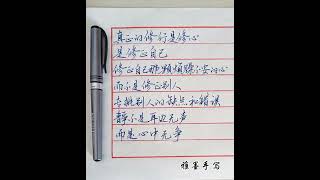 真正的修行是修心
是修正自己
修正自己那颗烦躁不安的心
而不是修正别人
去挑别人的缺点和错误
静不是耳边无声
而是心中无争
雅墨手写